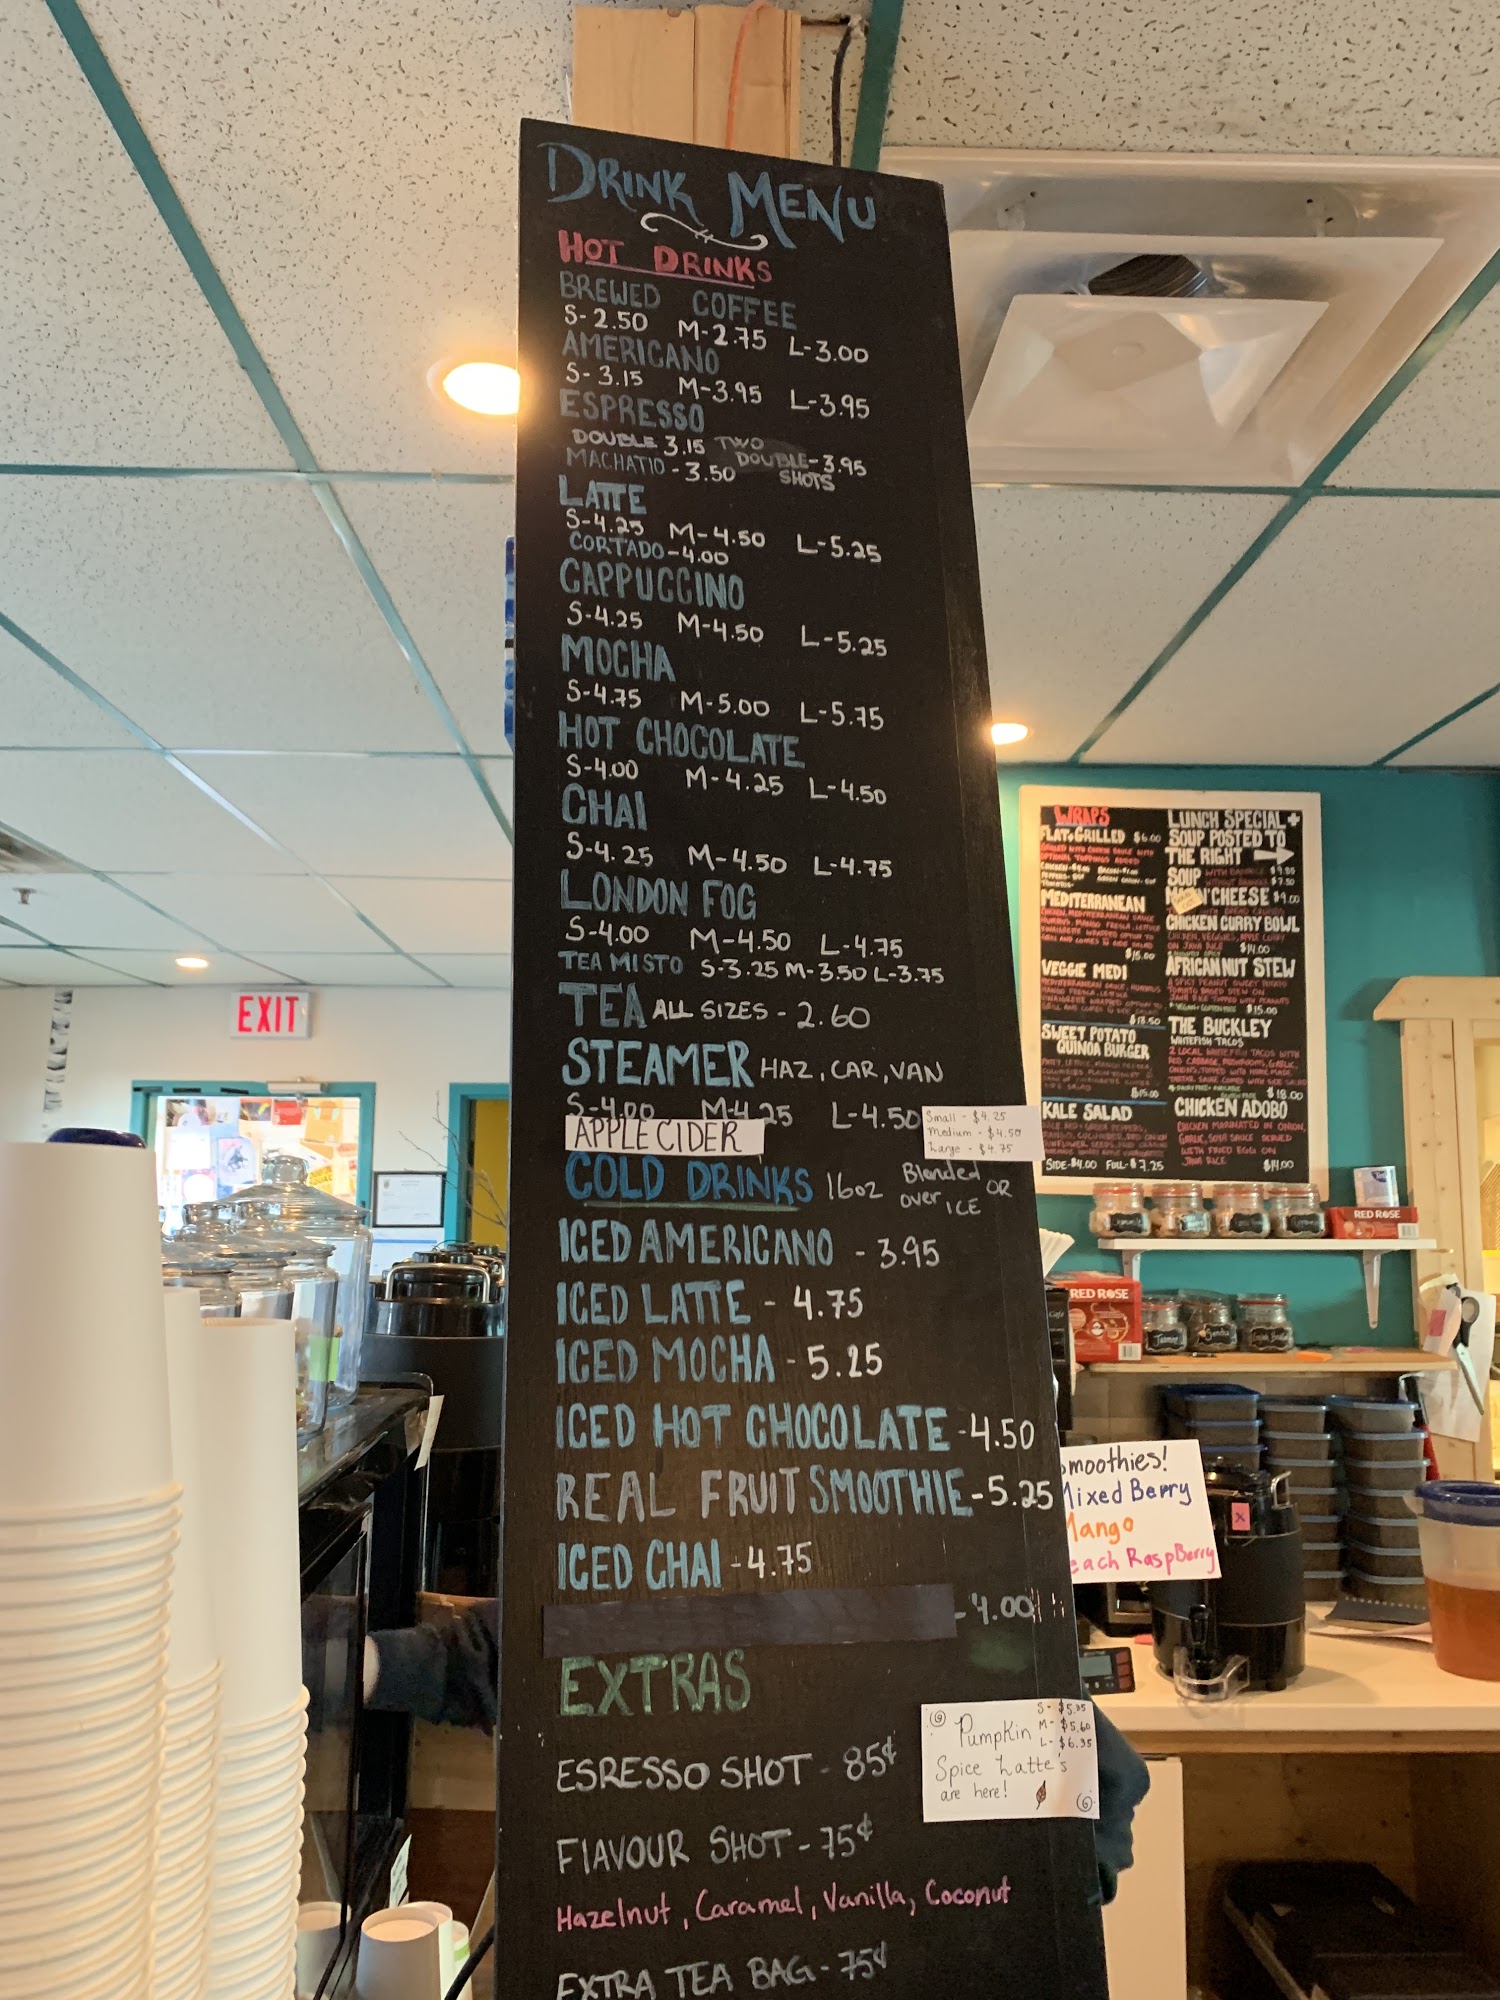 DRINK MENU
HOT DRINKS
BREWED COFFEE
S-2.50 M-2.75 L-3.00
AMERICANO
S-3.15 M-3.95 L-3.95
ESPRESSO
DOUBLE 3.15 TWO DOUBLE-3.95 SHOTS
MACHATIO-3.50
LATTE
S-4.25 M-4.50 L-5.25
CORTADO-4.00
CAPPUCCINO
S-4.25 M-4.50 L-5.25
MOCHA
S-4.75 M-5.00 L-5.75
HOT CHOCOLATE
S-4.00 M-4.25 L-4.50
CHAI
S-4.25 M-4.50 L-4.75
LONDON FOG
S-4.00 M-4.50 L-4.75
TEA MISTO S-3.25 M-3.50 L-3.75
TEA ALL SIZES - 2.60
STEAMER HAZ, CAR, VAN
S-4.00 M-4.25 L-4.50
APPLE CIDER
Small - $4.25
Medium - $4.50
Large - $4.75
COLD DRINKS 16oz Blended OR over ICE
ICED AMERICANO - 3.95
ICED LATTE - 4.75
ICED MOCHA - 5.25
ICED HOT CHOCOLATE - 4.50
REAL FRUIT SMOOTHIE - 5.25
ICED CHAI - 4.75
- 4.00
EXTRAS
ESRESSO SHOT - 85¢
FLAVOUR SHOT - 75¢
Hazelnut, Caramel, Vanilla, Coconut
EXTRA TEA BAG - 75¢
Pumpkin
Spice Latte's
are here!
M- $5.60
L- $6.35
moothies!
Mixed Berry
Mango
each RaspBerry
EXIT
WRAPS
FLAT+GRILLED $6.00
MEDITERRANEAN
$15.00
VEGGIE MEDI
$13.50
SWEET POTATO
QUINOA BURGER
$15.00
KALE SALAD
SIDE-$4.00 FULL-$7.25
LUNCH SPECIAL +
SOUP POSTED TO
THE RIGHT
SOUP
$7.50
CHEESE $9.00
CHICKEN CURRY BOWL
$14.00
AFRICAN NUT STEW
$15.00
THE BUCKLEY
WHITEFISH TACOS
2 LOCAL WHITEFISH TACOS WITH
RED CABBAGE, MUSHROOMS, GARLIC,
ONIONS, TOPPED WITH HOME MADE
$18.00
CHICKEN ADOBO
CHICKEN MARINATED IN ONION,
GARLIC, SOYA SAUCE SERVED
WITH FRIED EGG ON
JAVA RICE $14.00
RED ROSE
RED ROSE
Jasmine
Sencha
x